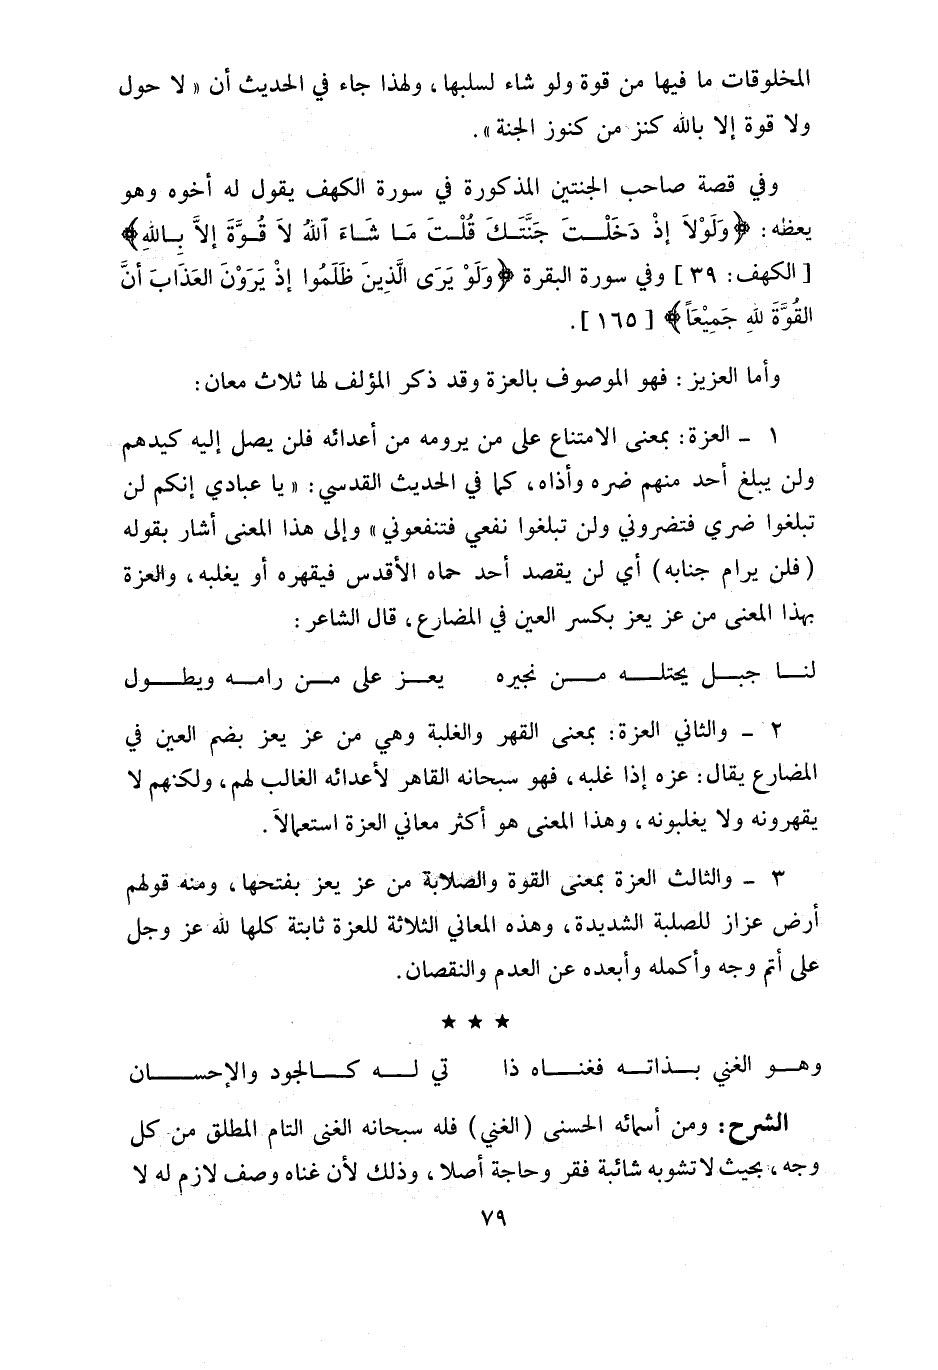 المخلوقات ما فيها من قوة ولو شاء لسلبها ، ولهذا جاء في الحديث أن « لا حول
ولا قوة إلا بالله كنز من كنوز الجنة ».
وفي قصة صاحب الجنتين المذكورة في سورة الكهف يقول له أخوه وهو
يعظه : ﴿وَلَوْلاَ إذْ دَخَلْتَ جَنَّتَكَ قُلْتَ مَا شَاءَ ٱللهُ لاَ قُوَّةَ إلاَّ بِاللهِ﴾
[ الكهف : ٣٩ ] وفي سورة البقرة ﴿وَلَوْ يَرَى الَّذِينَ ظَلَمُوا إذْ يَرَوْنَ العَذَابَ أنَّ
القُوَّةَ للهِ جَمِيْعَاً﴾ [ ١٦٥ ] .
وأما العزيز : فهو الموصوف بالعزة وقد ذكر المؤلف لها ثلاث معان :
١ ـ العزة : بمعنى الامتناع على من يرومه من أعدائه فلن يصل إليه كيدهم
ولن يبلغ أحد منهم ضره وأذاه ، كما في الحديث القدسي : « يا عبادي إنكم لن
تبلغوا ضري فتضروني ولن تبلغوا نفعي فتنفعوني » وإلى هذا المعنى أشار بقوله
( فلن يرام جنابه ) أي لن يقصد أحد حماه الأقدس فيقهره أو يغلبه ، والعزة
بهذا المعنى من عز يعز بكسر العين في المضارع ، قال الشاعر :
لنـا جبـل يحتلـه مـن نجيره يعـز على مـن رامـه ويطـول
٢ ـ والثاني العزة : بمعنى القهر والغلبة وهي من عز يعز بضم العين في
المضارع يقال : عزه إذا غلبه ، فهو سبحانه القاهر لأعدائه الغالب لهم ، ولكنهم لا
يقهرونه ولا يغلبونه ، وهذا المعنى هو أكثر معاني العزة استعمالاً .
٣ ـ والثالث العزة بمعنى القوة والصلابة من عز يعز بفتحها ، ومنه قولهم
أرض عزاز للصلبة الشديدة ، وهذه المعاني الثلاثة للعزة ثابتة كلها لله عز وجل
على أتم وجه وأكمله وأبعده عن العدم والنقصان .
★ ★ ★
وهـو الغني بـذاتـه فغنـاه ذا تي لـه كـالجود والإحسـان
الشرح : ومن أسمائه الحسنى ( الغني ) فله سبحانه الغنى التام المطلق من كل
وجه ، بحيث لا تشوبه شائبة فقر وحاجة أصلا ، وذلك لأن غناه وصف لازم له لا
٧٩